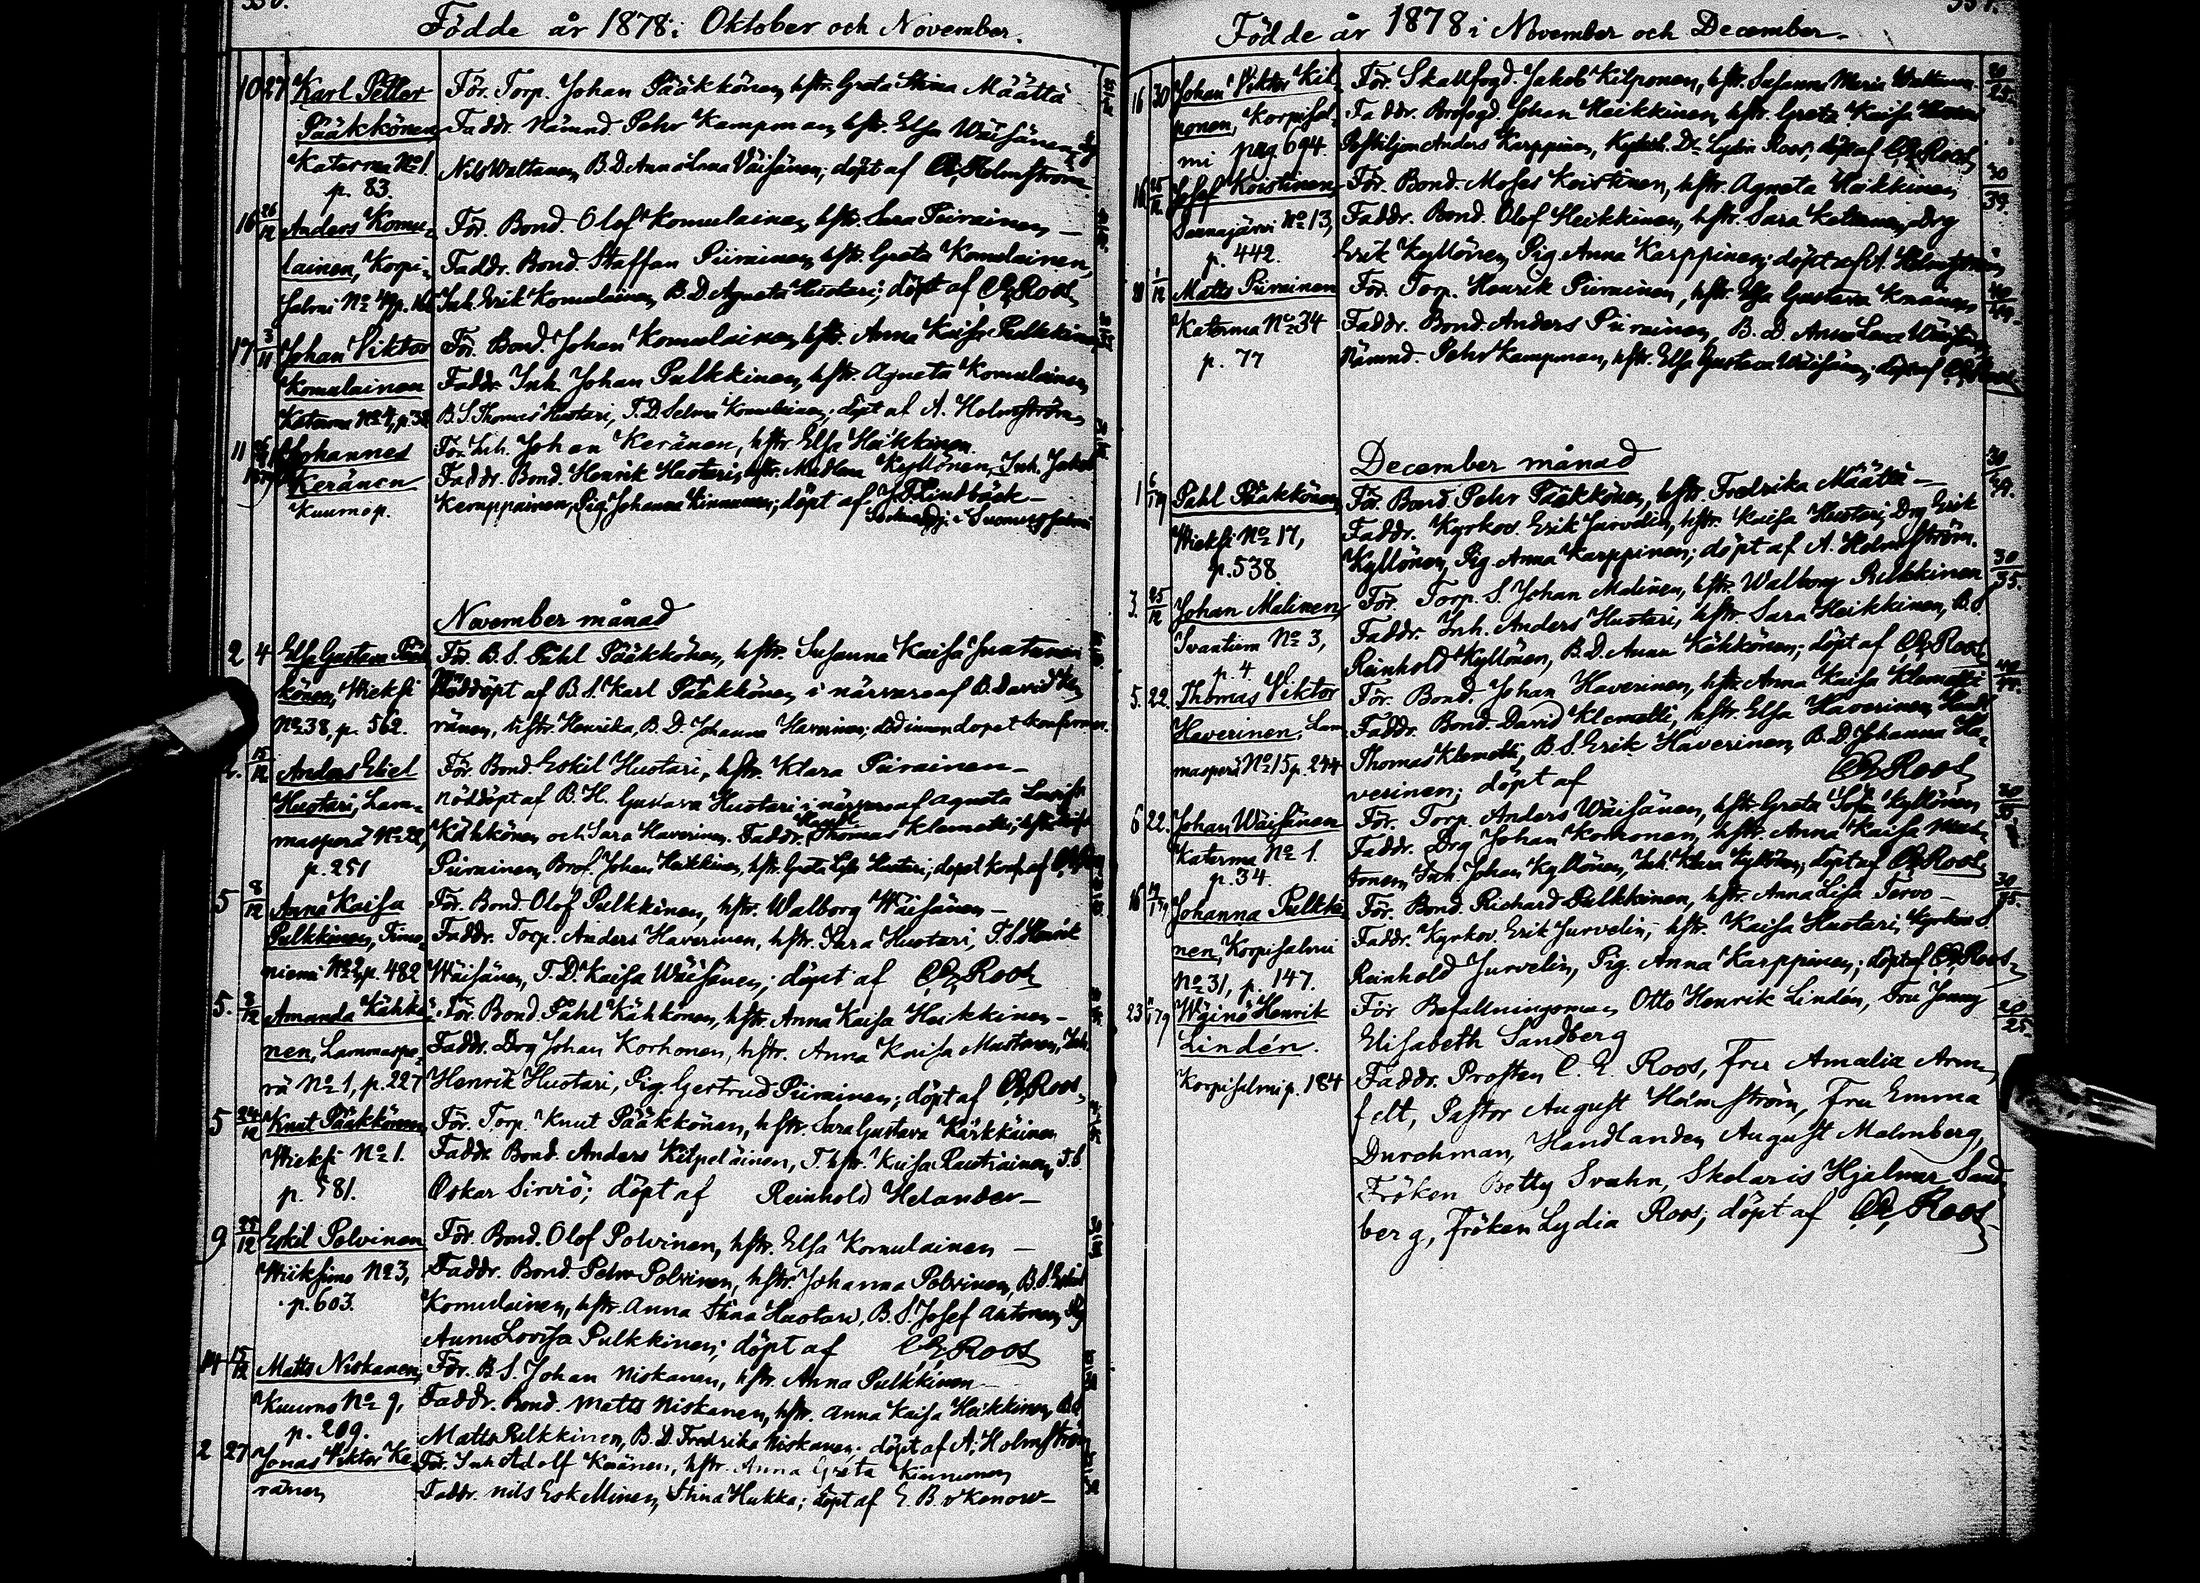 Födde år 1878 i Oktober och November.
10 27 Karl Petter För. Torp. Johan Pääkkönen, hstr. Greta Stina Määttä
Pääkkönen Faddr. Nämnd. Pehr Kampman, hstr. Elsa Wäisänen,
Katerma No 1. Nils Waltanen, B.D. Anna Lovisa Väisänen; döpt af A. Holmström
p. 83.
16 26/12 Anders Komu- För. Bond. Olof Komulainen, hstr. Sara Piirainen
lainen, Korpi- Faddr. Bond. Staffan Piirainen, hstr. Greta Komulainen,
salmi No Inh. Erik Komulainen, B.D. Agneta Huotari; döpt af C. E. Roos
17 3/11 Johan Viktor För. Bond. Johan Komulainen, hstr. Anna Kaisa Pulkkinen
Komulainen Faddr. Inh. Johan Pulkkinen, hstr. Agneta Komulainen,
Katerma No 4, p. 38 B.S. Thomas Huotari, T.D. Selma Komulainen; döpt af A. Holmström
11 Johannes För. Inh. Johan Keränen, hstr. Elsa Heikkinen
Keränen Faddr. Bond. Henrik Huotari, hstr. Madlena Kyllönen, Inh. Jakob
Kuumo p. Kemppainen, Pig. Johanna Kinnunen; döpt af J. F. Lindbäck
i Suomussalmi
November månad
2 4 Elsa Gustava Pääk- För. B.S. Påhl Pääkkönen, hstr. Susanna Kaisa Juntunen
könen, Wieksi Nöddöpt af B.S. Karl Pääkkönen i närvaro af B. David Ke-
No 38, p. 562. ränen, hstr. Henrika, B.D. Johanna Haverinen; död innan dopet konfirmer.
15/12 Anders Eliel För. Bond. Eskil Huotari, hstr. Klara Piirainen
Huotari, Lam- Nöddöpt af B.H. Gustava Huotari i närvaro af Agneta Lovisa
masperä No 28, Kähkönen och Sara Haverinen. Faddr. Thomas Klemetti, hstr. Kaisa
p. 251 Piirainen, Brof. Johan Heikkinen, hstr. Greta Lisa Huotari; dopet konf. af
5 8/12 Anna Kaisa För. Bond. Olof Pulkkinen, hstr. Walborg Wäisänen
Pulkkinen, Timo- Faddr. Torp. Anders Haverinen, hstr. Sara Huotari, T.S. Henrik
niemi No 2, p. 482 Wäisänen, T.D. Kaisa Wäisänen; döpt af C. E. Roos
5. 8/12 Amanda Kähkö- För. Bond. Påhl Kähkönen, hstr. Anna Kaisa Heikkinen
nen, Lammaspe- Faddr. Drg Johan Korhonen, hstr. Anna Kaisa Mustonen, Inh.
rä No 1, p. 227 Henrik Huotari, Pig. Gertrud Piirainen; döpt af C. E. Roos
5 24/12 Knut Pääkkönen För. Torp. Knut Pääkkönen, hstr. Sara Gustava Kärkkäinen
Wieksi No 1. Faddr. Bond. Anders Kilpeläinen, T. hstr. Kaisa Rautiainen, T.S.
p. 581. Oskar Sirviö; döpt af Reinhold Helander
9 22/12 Eskil Polvinen För. Bond. Olof Polvinen, hstr. Elsa Komulainen
Wiiksimo No 3, Faddr. Bond. Pehr Polvinen, hstr. Johanna Polvinen, B.S. Eskil
p. 603. Komulainen, hstr. Anna Stina Huotari, B.S. Josef Antonen, Pig
Anna Lovisa Pulkkinen; döpt af C. E. Roos
14 15/12 Matts Niskanen, För. B.S. Johan Niskanen, hstr. Anna Pulkkinen
Kuumo No 9, Faddr. Bond. Matts Niskanen, hstr. Anna Kaisa Heikkinen, B.S.
p. 209. Matts Pulkkinen, B.D. Fredrika Niskanen; döpt af A. Holmström
2 27 Jonas Viktor Ke- För. Inh. Adolf Keränen, hstr. Anna Greta Kinnunen
ränen Faddr. Nils Eskellinen, Stina Hukka; döpt af E. Brokenow
Födde år 1878 i November och December.
16 30 Johan Viktor Kil- För. Skallfogd. Jakob Kilponen, hstr. Susanna Maria Waltanen
ponen, Korpisal- Faddr. Brofogd. Johan Heikkinen, hstr. Greta Kaisa
mi pag. 694. Postiljon Anders Karppinen, Lydia Roos; döpt af C. E. Roos
16 25/12 Josef Koistinen För. Bond. Moses Koistinen, hstr. Agneta Heikkinen
Saunajärvi No 13, Faddr. Bond. Olof Heikkinen, hstr. Sara Keltanen, Drg
p. 442. Erik Kyllönen, Pig. Anna Karppinen; döpt af A. Holmström
18 1/12 Matts Piirainen För. Torp. Henrik Piirainen, hstr. Elsa Gustava Kinnunen
Katerma No 34 Faddr. Bond. Anders Piirainen, B.D. Anna Lovisa Wäisänen
p. 77 Nämnd. Pehr Kampman, hstr. Elsa Gustava Wäisänen; döpt af C. E. Roos
December månad
1 6/1 79 Påhl Pääkkönen För. Bond. Pehr Pääkkönen, hstr. Fredrika Määttä
Wieksi No 17, Faddr. Kyrkov. Erik Jurvelin, hstr. Kaisa Huotari, Drg Erik
p. 538 Kyllönen, Pig. Anna Karppinen; döpt af A. Holmström.
3. 25/12 Johan Malinen, För. Torp. S. Johan Malinen, hstr. Walborg Pulkkinen
Ivantiira No 3, Faddr. Inh. Anders Huotari, hstr. Sara Heikkinen, B.S.
p. 4. Reinhold Kyllönen, B.D. Anna Kähkönen; döpt af C. E. Roos
5. 22. Thomas Viktor För. Bond. Johan Haverinen, hstr. Anna Kaisa Klemetti
Haverinen, Lam- Faddr. Bond. David Klemetti, hstr. Elsa Haverinen, Handl.
masperä No 15, p. 244 Thomas Klemetti, B.S. Erik Haverinen, B.D. Johanna Ha-
verinen; döpt af C. E. Roos
6 22. Johan Wäisänen För. Torp. Anders Wäisänen, hstr. Greta Sofia Kyllönen
Katerma No 1. Faddr. Drg Johan Korhonen, hstr. Anna Kaisa Mus-
p. 34. tonen, Inh. Johan Kyllönen, Inh. Klara Kyllönen; döpt af C. E. Roos
16 Johanna Pulkki- För. Bond. Richard Pulkkinen, hstr. Anna Lisa Tervo
nen, Korpisalmi Faddr. Kyrkov. Erik Jurvelin, hstr. Kaisa Huotari, Kyrkov. S.
No 31, p. 147. Reinhold Jurvelin, Pig. Anna Karppinen; döpt af C. E. Roos
23 Wäinö Henrik För. Befallningsman Otto Henrik Lindén, Fru Jenny
Lindén. Elisabeth Sandberg
Korpisalmi p. 184 Faddr. Prosten C. E. Roos, Fru Amalia Arm-
felt, Pastor August Holmström, Fru Emma
Durchman, Handlanden August Malmberg,
Fröken Betty Svahn, Skolaris Hjalmar Sand-
berg, Fröken Lydia Roos; döpt af C. E. Roos